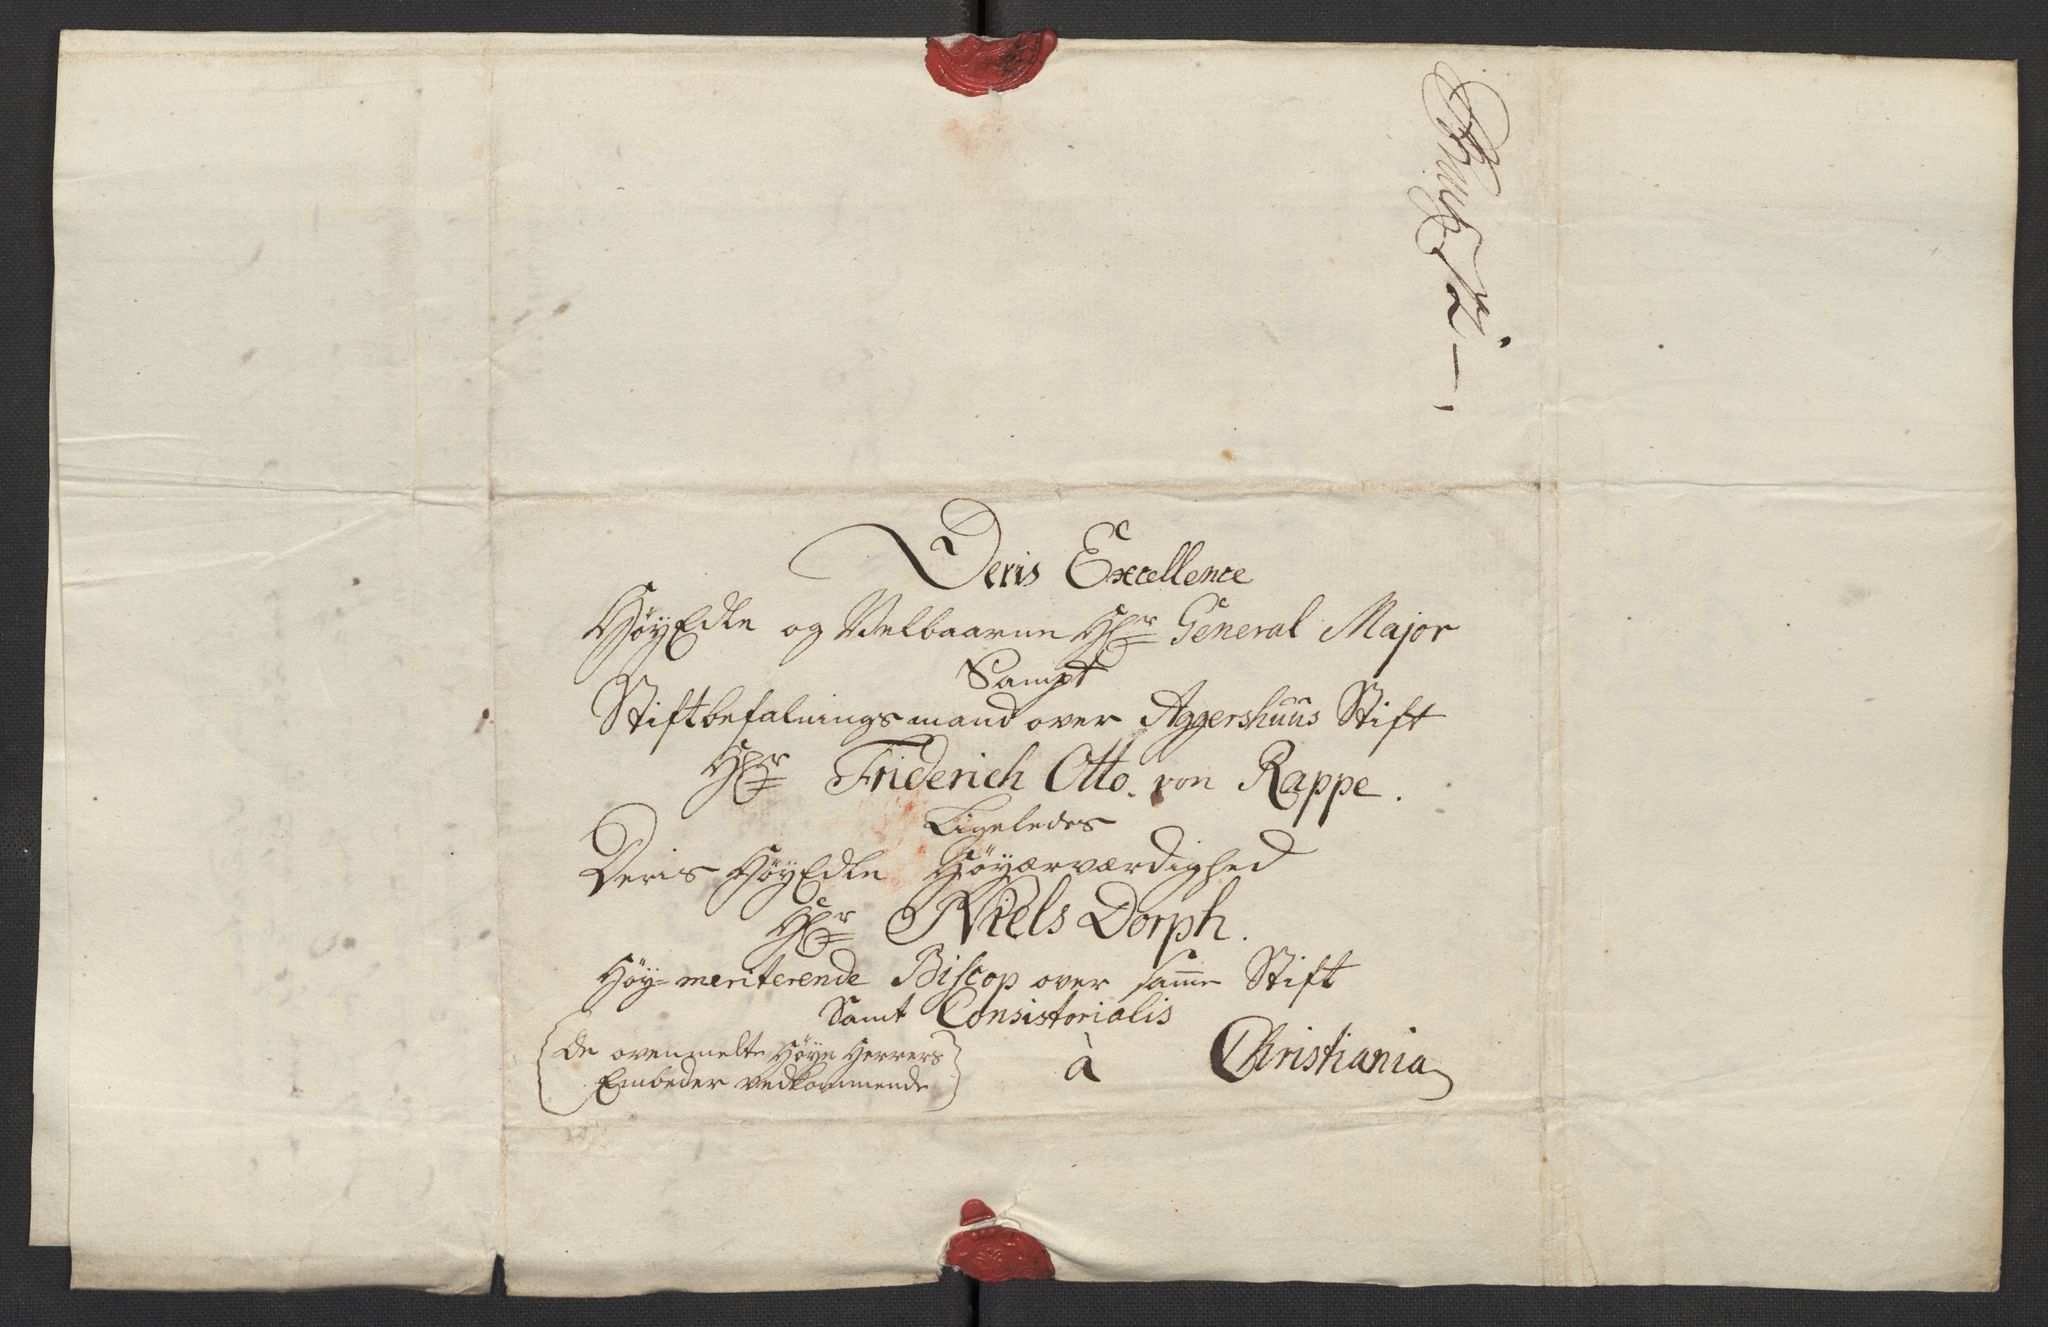 Deris Excellence
HöyEdle og Velbaarne Hr General Major
Sampt
Stiftbefalningsmand over Aggershuus Stift
Hr Friderich Otto von Rappe.
Ligeledes
Deris HöyEdle Höyærværdighed
Hr Niels Dorph.
Höy-meriterende Biscop over samme Stift
Samt Consistorialis
De ovenmelte Höye Herrers
Embeder vedkommende
à Christiania